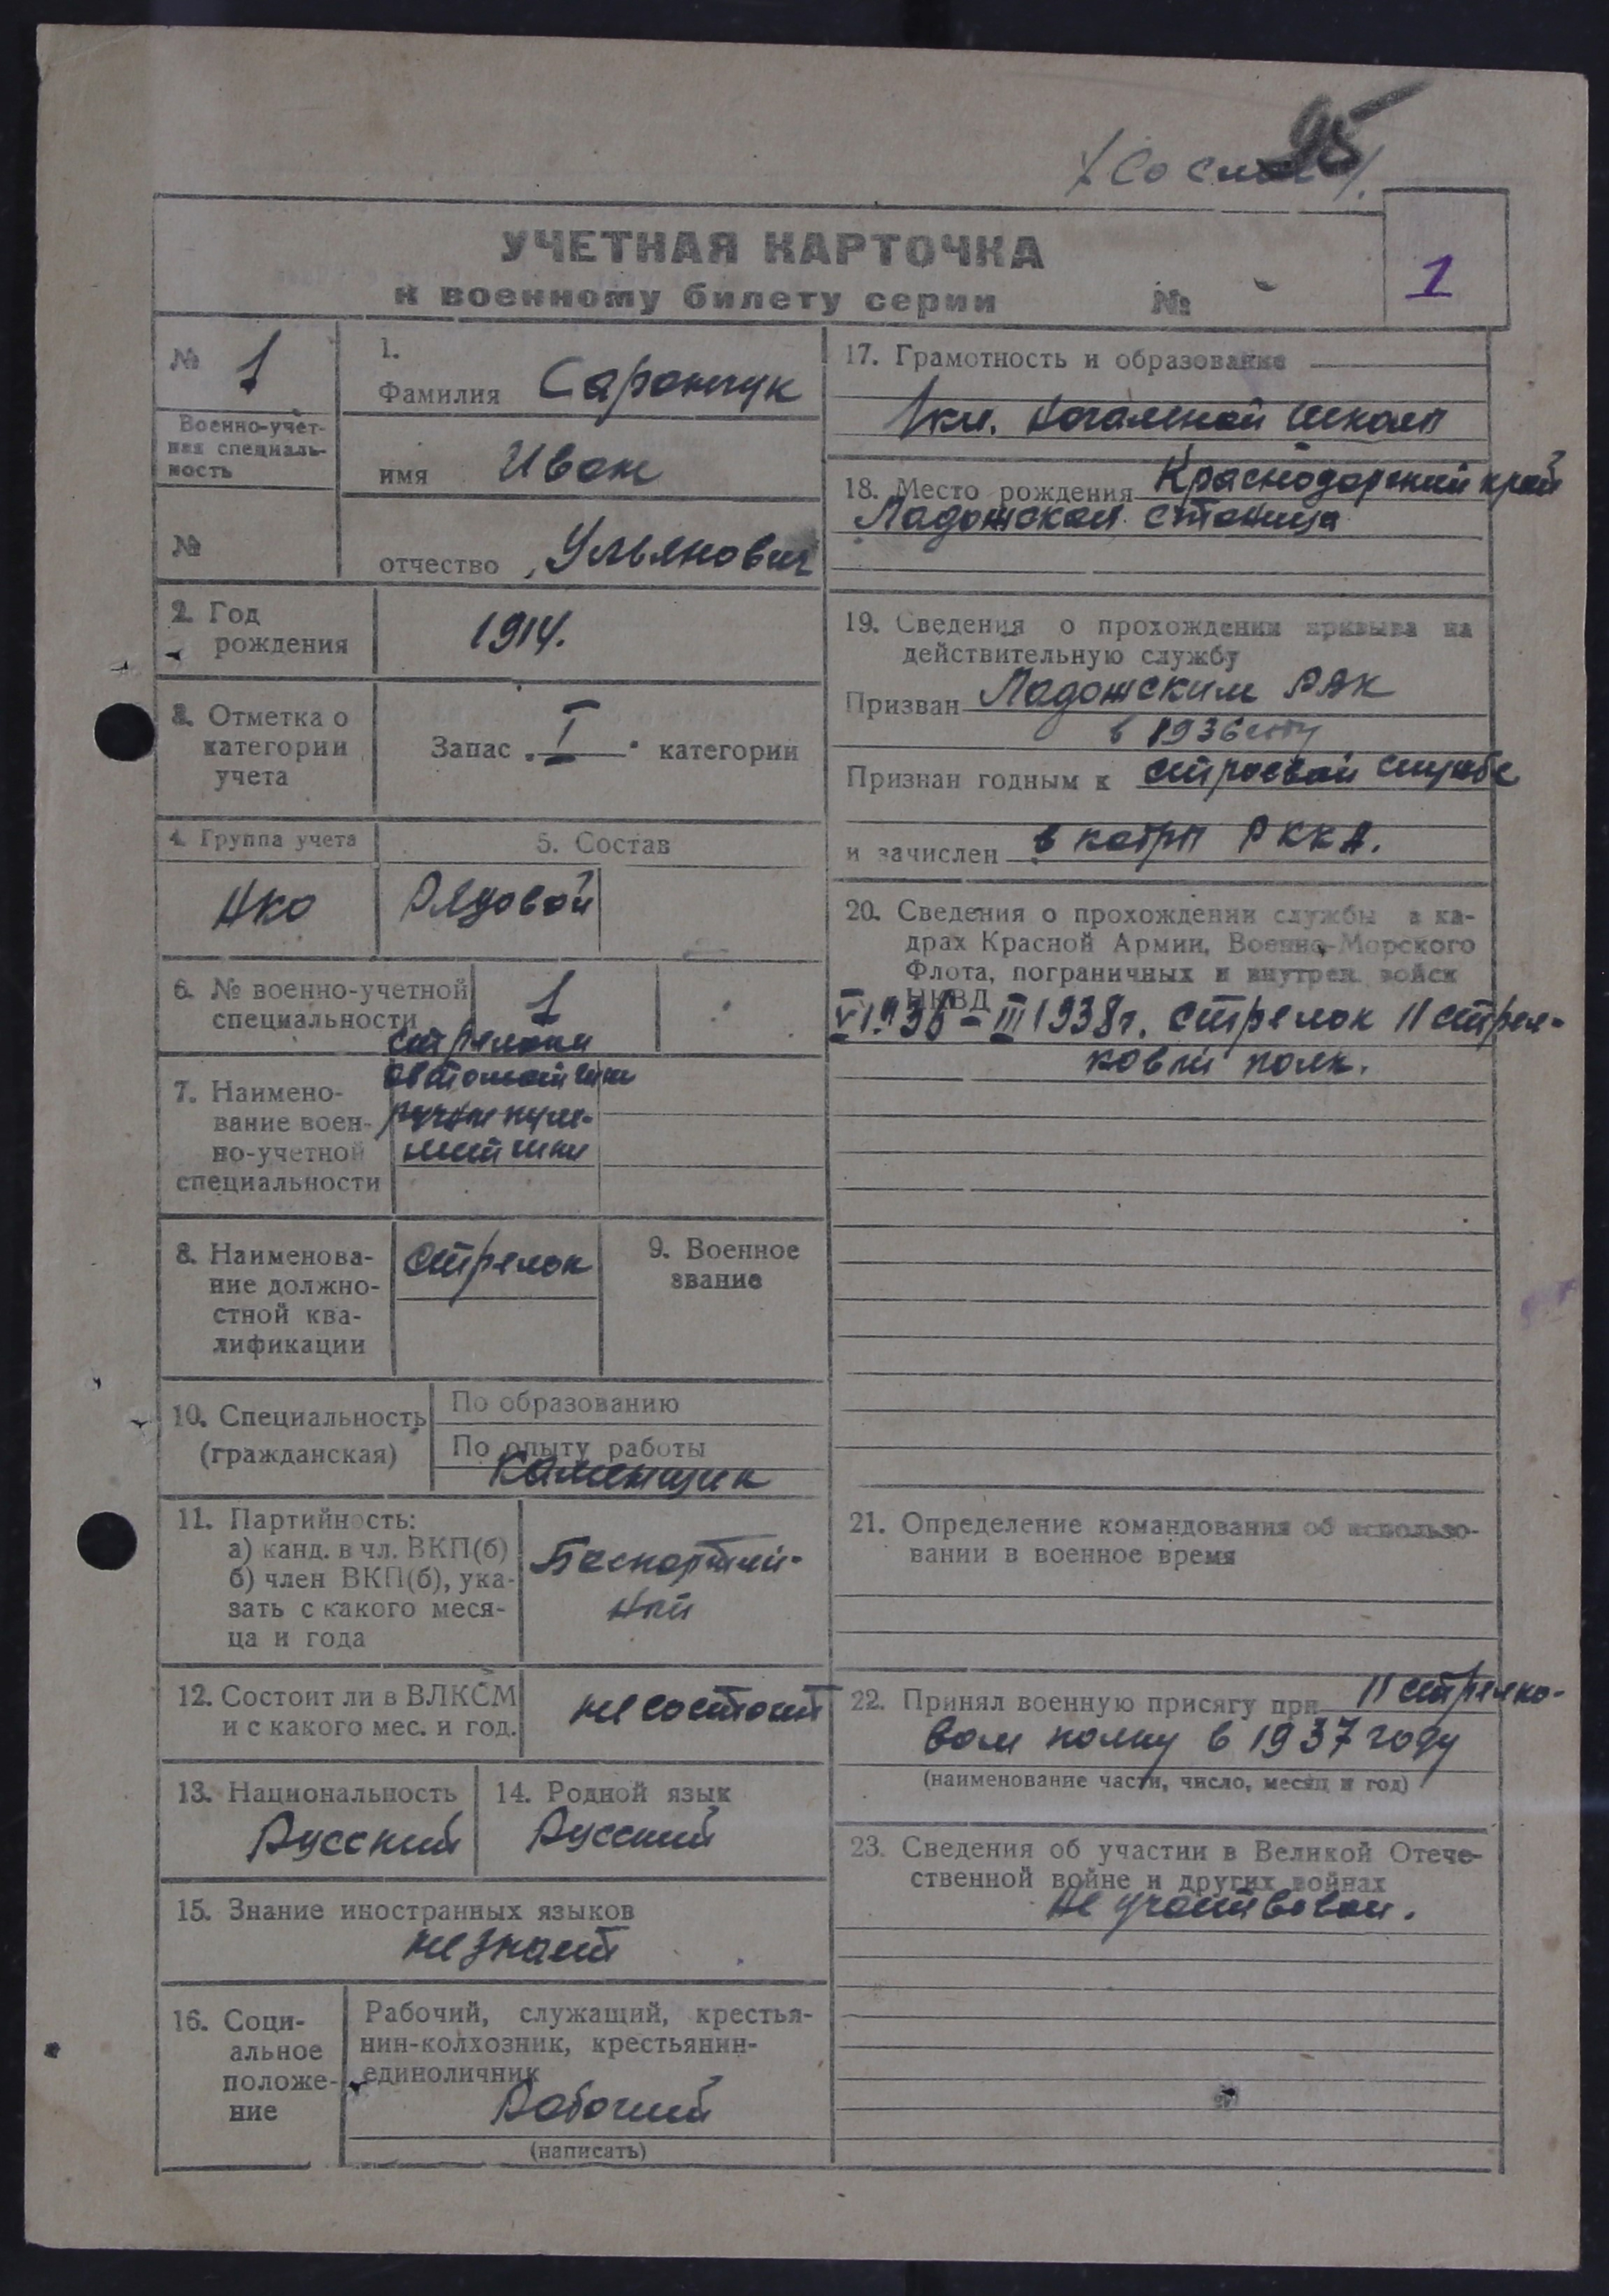 95
УЧЕТНАЯ КАРТОЧКА
к военному билету серии №
1
№ 1
Военно-учет-
ная специаль-
ность
№
1.
Фамилия Саранчук
имя Иван
отчество Ульянович
2. Год
рождения
1914.
3. Отметка о
категории
учета
Запас I категории
4. Группа учета
РККА
5. Состав
Рядовой
6. № военно-учетной
специальности
1
7. Наимено-
вание воен-
но-учетной
специальности
стрелки
автоматчики
ручные пуле-
метчики
8. Наименова-
ние должно-
стной ква-
лификации
стрелок
9. Военное
звание
10. Специальность
(гражданская)
По образованию
По опыту работы
Каменщик
11. Партийность:
а) канд. в чл. ВКП(б)
б) член ВКП(б), ука-
зать с какого меся-
ца и года
Беспартий-
ный
12. Состоит ли в ВЛКСМ
и с какого мес. и год.
не состоит
13. Национальность
Русский
14. Родной язык
Русский
15. Знание иностранных языков
не знает
16. Соци-
альное
положе-
ние
Рабочий, служащий, крестья-
нин-колхозник, крестьянин-
единоличник
Рабочий
(написать)
17. Грамотность и образование
1 кл. начальной школы
18. Место рождения Краснодарский край
Ладожская станица
19. Сведения о прохождении призыва на
действительную службу
Призван Ладожским РВК
в 1936 году
Признан годным к строевой службе
и зачислен в кадры РККА.
20. Сведения о прохождении службы в ка-
драх Красной Армии, Военно-Морского
Флота, пограничных и внутрен. войск
НКВД
VI 1936 - III 1938 г. стрелок 11 стрел-
ковый полк.
21. Определение командования об использо-
вании в военное время
22. Принял военную присягу при 11 стрелко-
вом полку в 1937 году
(наименование части, число, месяц и год)
23. Сведения об участии в Великой Отече-
ственной войне и других войнах
Не участвовал.